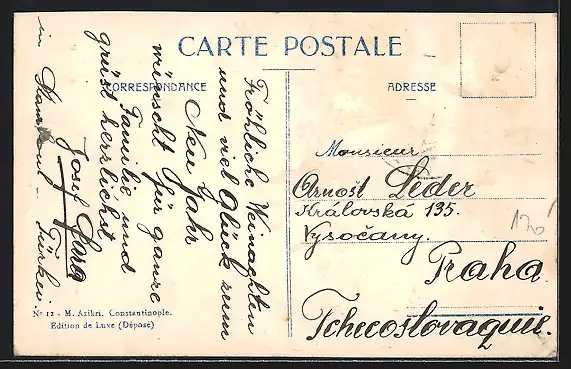 CARTE POSTALE
CORRESPONDANCE
ADRESSE
Fröhliche Weinachten
und viel Glück zum
Neu Jahr
wünscht für ganze
Familie und
grüsst herrlichst
Josef
in Stamboul - Türkei
Monsieur
Arnošt Leder
Královská 135.
Vysočany.
Praha
Tchecoslovaquie.
No 12 - M. Azikri. Constantinople.
Edition de Luxe (Déposé)